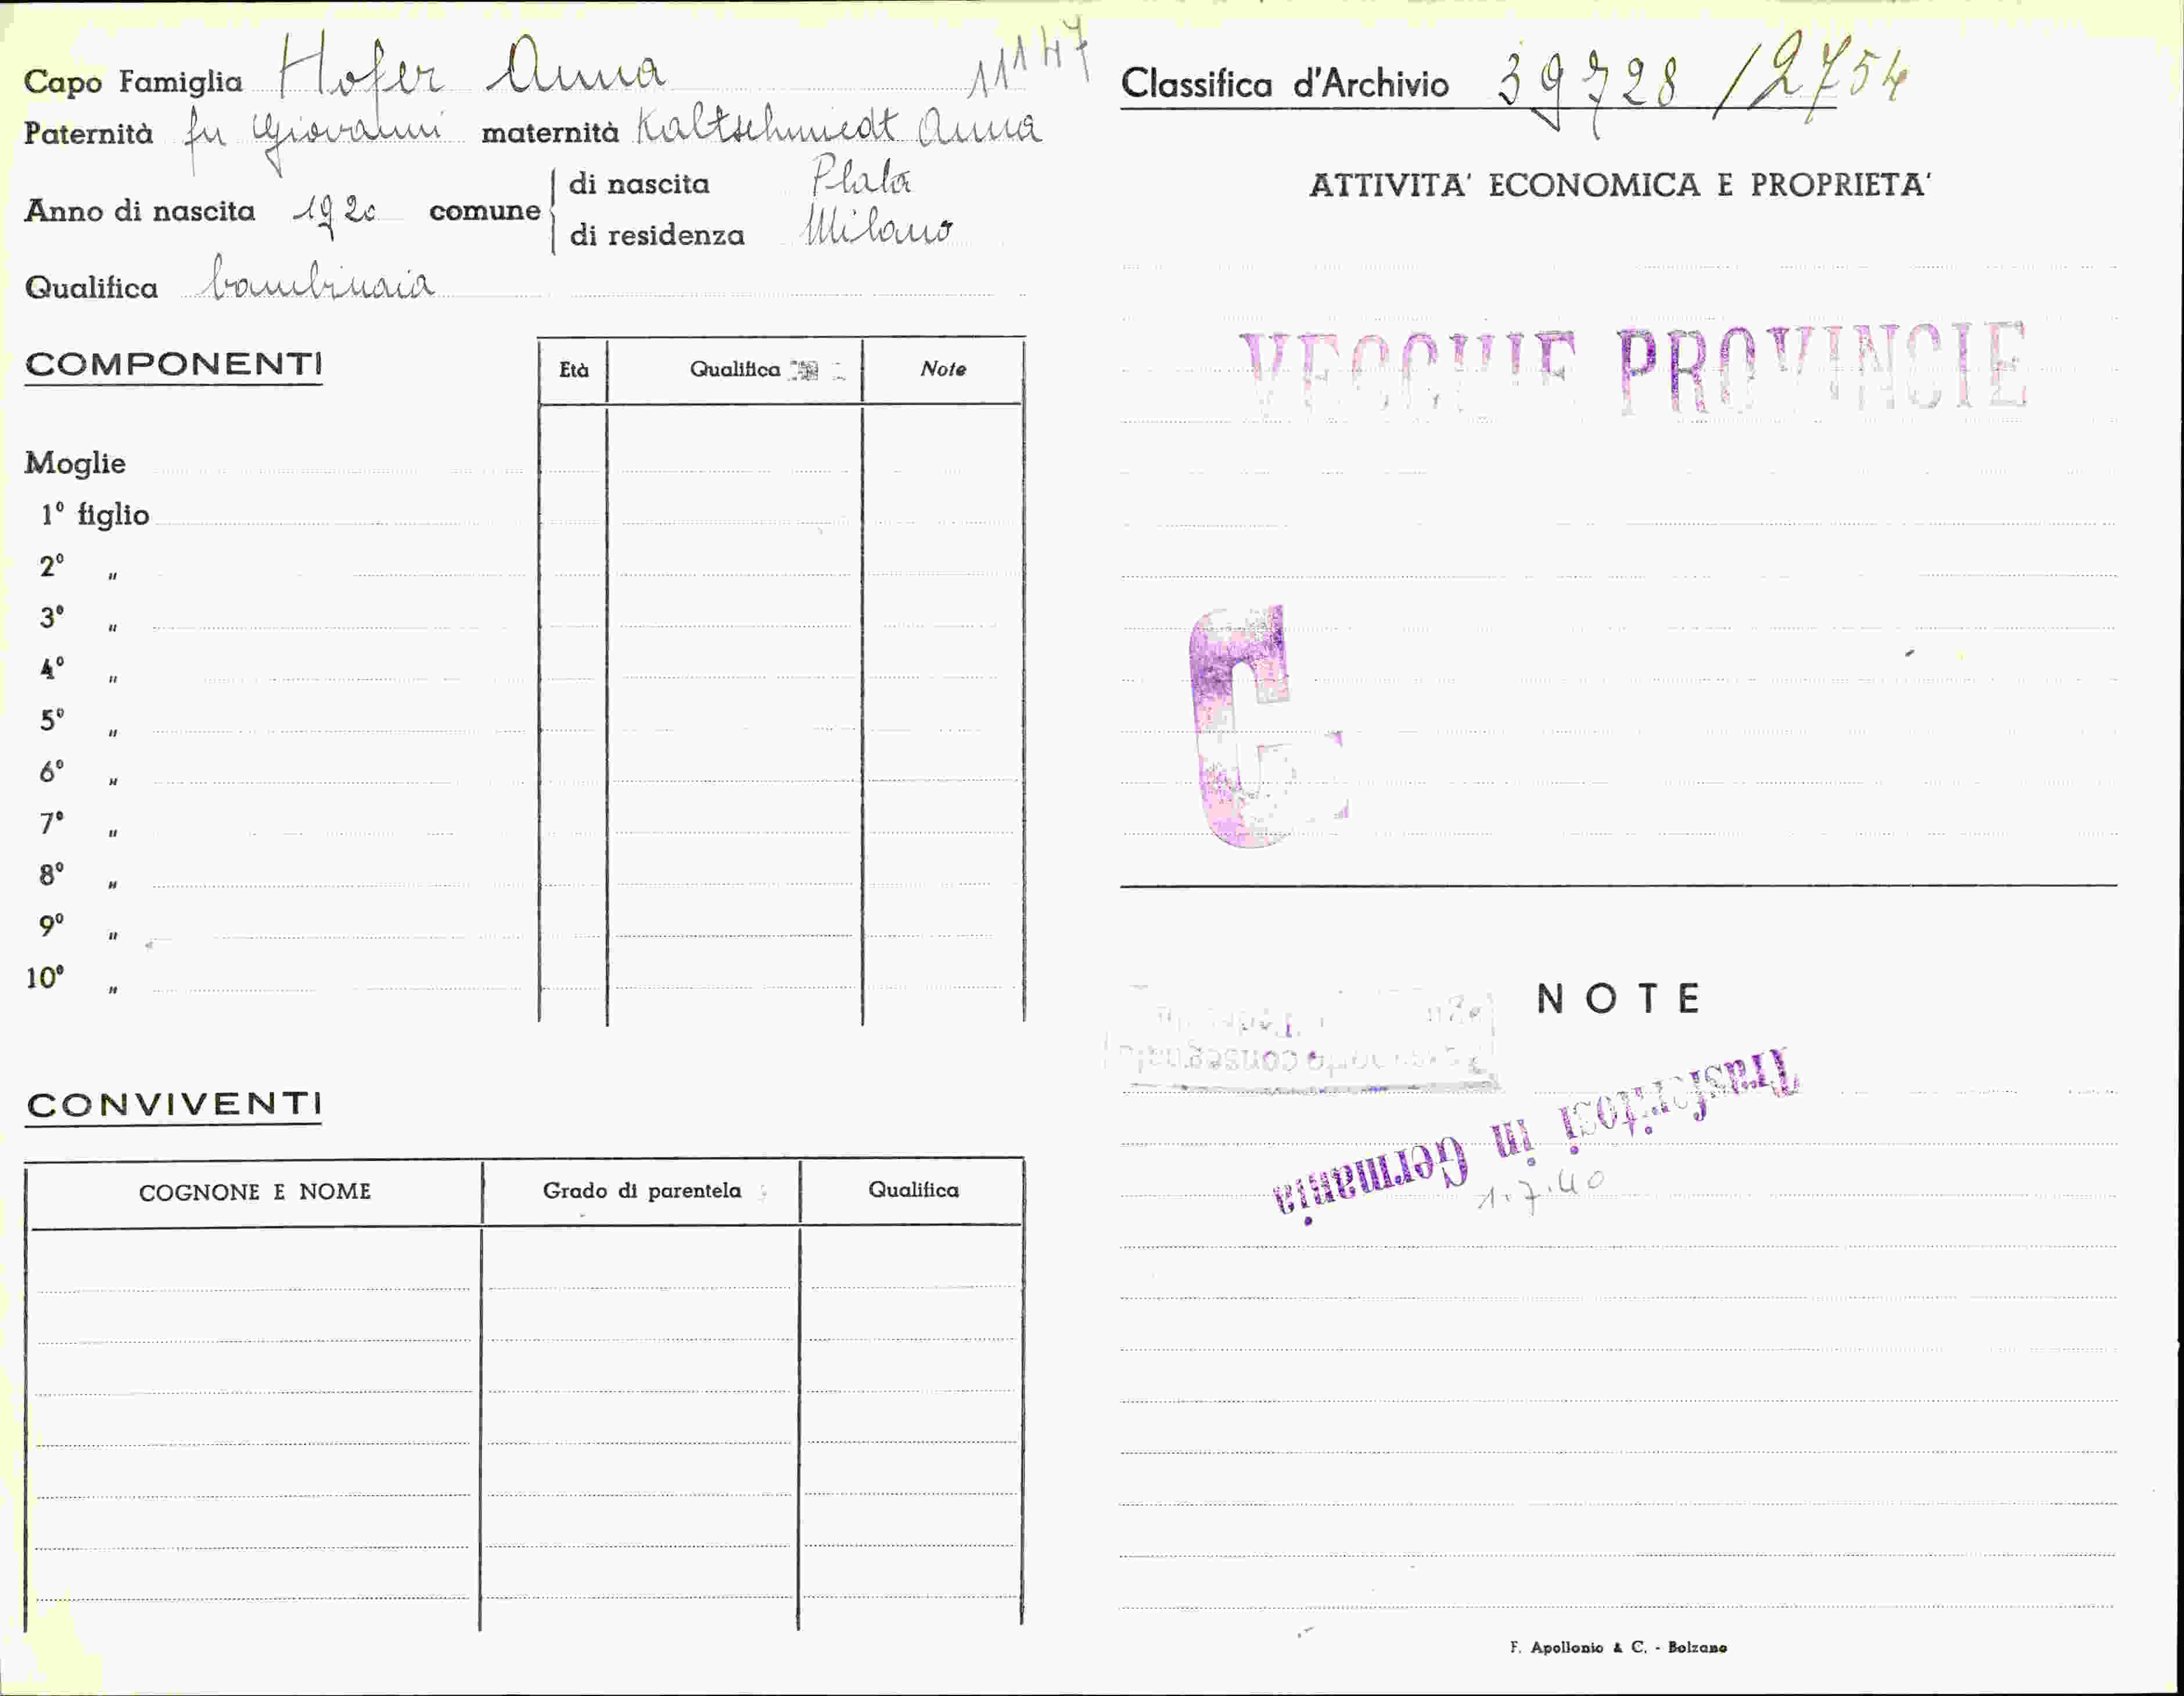 Capo Famiglia Hofer Anna 11147
Paternità fu Giovanni maternità Kaltschmiedt Anna
Anno di nascita 1920 comune
di nascita Plata
di residenza Milano
Qualifica bambinaia
COMPONENTI
Età Qualifica Note
Moglie
1º figlio
2º "
3º "
4º "
5º "
6º "
7º "
8º "
9º "
10º "
CONVIVENTI
COGNONE E NOME Grado di parentela Qualifica
Classifica d'Archivio 39728 / 2754
ATTIVITA' ECONOMICA E PROPRIETA'
VECCHIE PROVINCIE
C
NOTE
Trasferitosi in Germania
1.7.40
F. Apollonio & C. - Bolzano